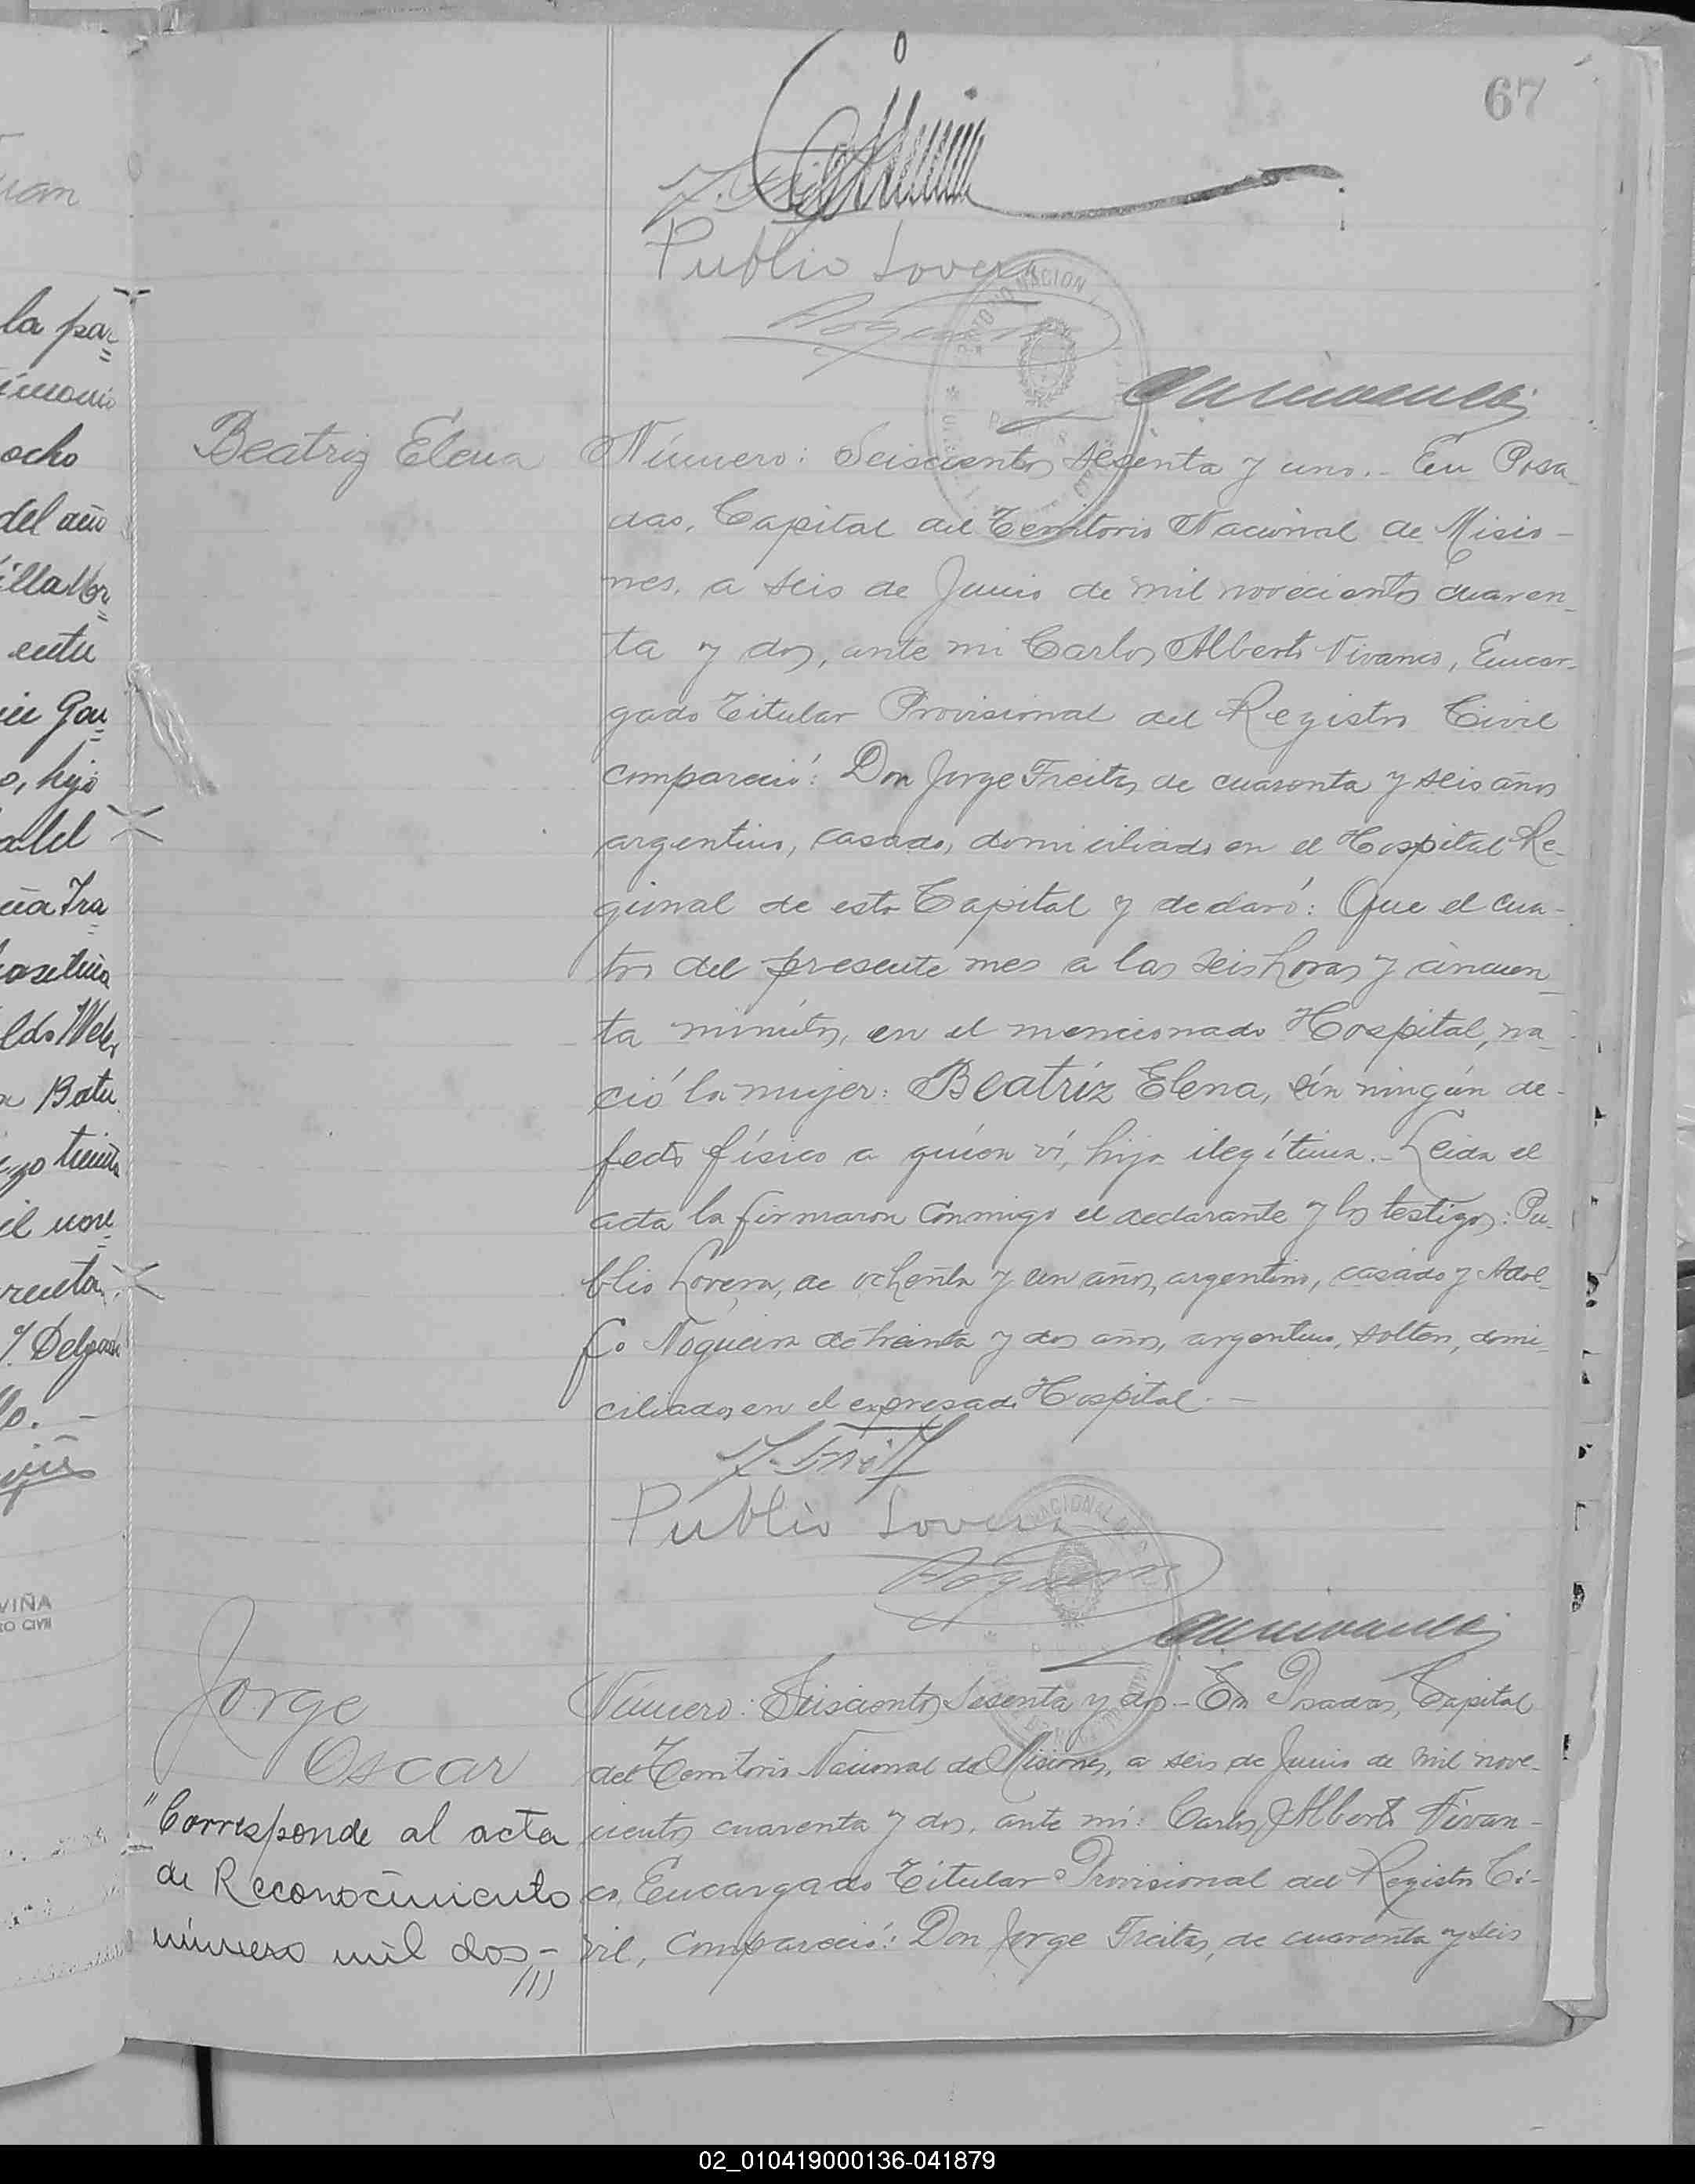 67
Publio Lovera
Beatriz Elena
Número: Seiscientos sesenta y uno.- En Posa-
das, Capital del Territorio Nacional de Misio-
nes, a seis de Junio de mil novecientos cuaren-
ta y dos, ante mi Carlos Alberto Vivanco, Encar-
gado Titular Provisional del Registro Civil
compareció: Don Jorge Freitas, de cuarenta y seis años
argentino, casado, domiciliado en el Hospital Re-
gional de esta Capital y declaró: Que el cua-
tro del presente mes a las seis horas y cincuen-
ta minutos, en el mencionado Hospital, na-
ció la mujer: Beatríz Elena, sin ningún de-
fecto físico a quien ví, hija ilegítima.- Leida el
acta la firmaron conmigo el declarante y los testigos: Pu-
blio Lovera, de ochenta y un años, argentino, casado y Adol-
fo Nogueira de treinta y dos años, argentino, soltero, domi-
ciliados en el expresado Hospital.-
Publio Lovera
Jorge
Oscar
"Corresponde al acta
de Reconocimiento
número mil dos-
///
Número: Seiscientos sesenta y dos.- En Posadas, Capital
del Territorio Nacional de Misiones, a seis de Junio de mil nove-
cientos cuarenta y dos, ante mí: Carlos Alberto Vivan-
co, Encargado Titular Provisional del Registro Ci-
vil, compareció: Don Jorge Freitas, de cuarenta y seis
la par
ocho
del año
o, hijo
Delgado
VIÑA
RO CIVIL
02_010419000136-041879